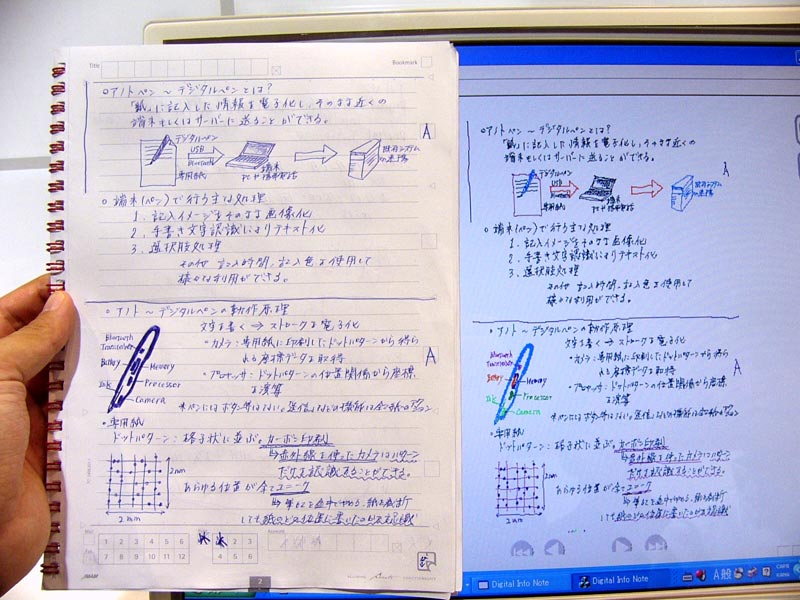 Title
Bookmark
アノトペン ～ デジタルペンとは?
「紙」に記入した情報を電子化し、そのまま近くの
端末もしくはサーバーに送ることができる。
A
デジタルペン
USB
Bluetooth
専用紙
端末
PCや携帯電話
既存システム
の連携
端末(ペン)で行う主な処理
1. 記入イメージをそのまま画像化
2. 手書き文字認識によりテキスト化
3. 選択肢処理
その他 記入時間、記入色を使用して
様々な利用ができる。
アノト ～ デジタルペンの動作原理
文字を書く ⇒ ストロークを電子化
・カメラ:専用紙に印刷したドットパターンから得ら
れる座標データを取得
・プロセッサ:ドットパターンの位置関係から座標
を演算
Bluetooth
Transceiver
Battery
Ink
Memory
Processor
Camera
A
専用紙
ドットパターン:格子状に並ぶ。カーボン印刷
⇒赤外線を使ったカメラはパターン
だけを認識することができる。
2mm
2mm
あらゆる位置が全てユニーク
1 2 3 4 5 6
7 8 9 10 11 12
4 5 6
2
アノトペン ～ デジタルペンとは?
「紙」に記入した情報を電子化し、そのまま近くの
端末もしくはサーバーに送ることができる。
A
デジタルペン
USB
Bluetooth
専用紙
端末
PCや携帯電話
既存システム
の連携
端末(ペン)で行う主な処理
1. 記入イメージをそのまま画像化
2. 手書き文字認識によりテキスト化
3. 選択肢処理
その他 記入時間、記入色を使用して
様々な利用ができる。
アノト ～ デジタルペンの動作原理
文字を書く ⇒ ストロークを電子化
・カメラ:専用紙に印刷したドットパターンから得ら
れる座標データを取得
・プロセッサ:ドットパターンの位置関係から座標
を演算
Bluetooth
Transceiver
Battery
Ink
Memory
Processor
Camera
A
専用紙
ドットパターン:格子状に並ぶ。カーボン印刷
⇒赤外線を使ったカメラはパターン
だけを認識することができる。
2mm
2mm
あらゆる位置が全てユニーク
Digital Info Note
Digital Info Note
A 般
CAPS
KANA